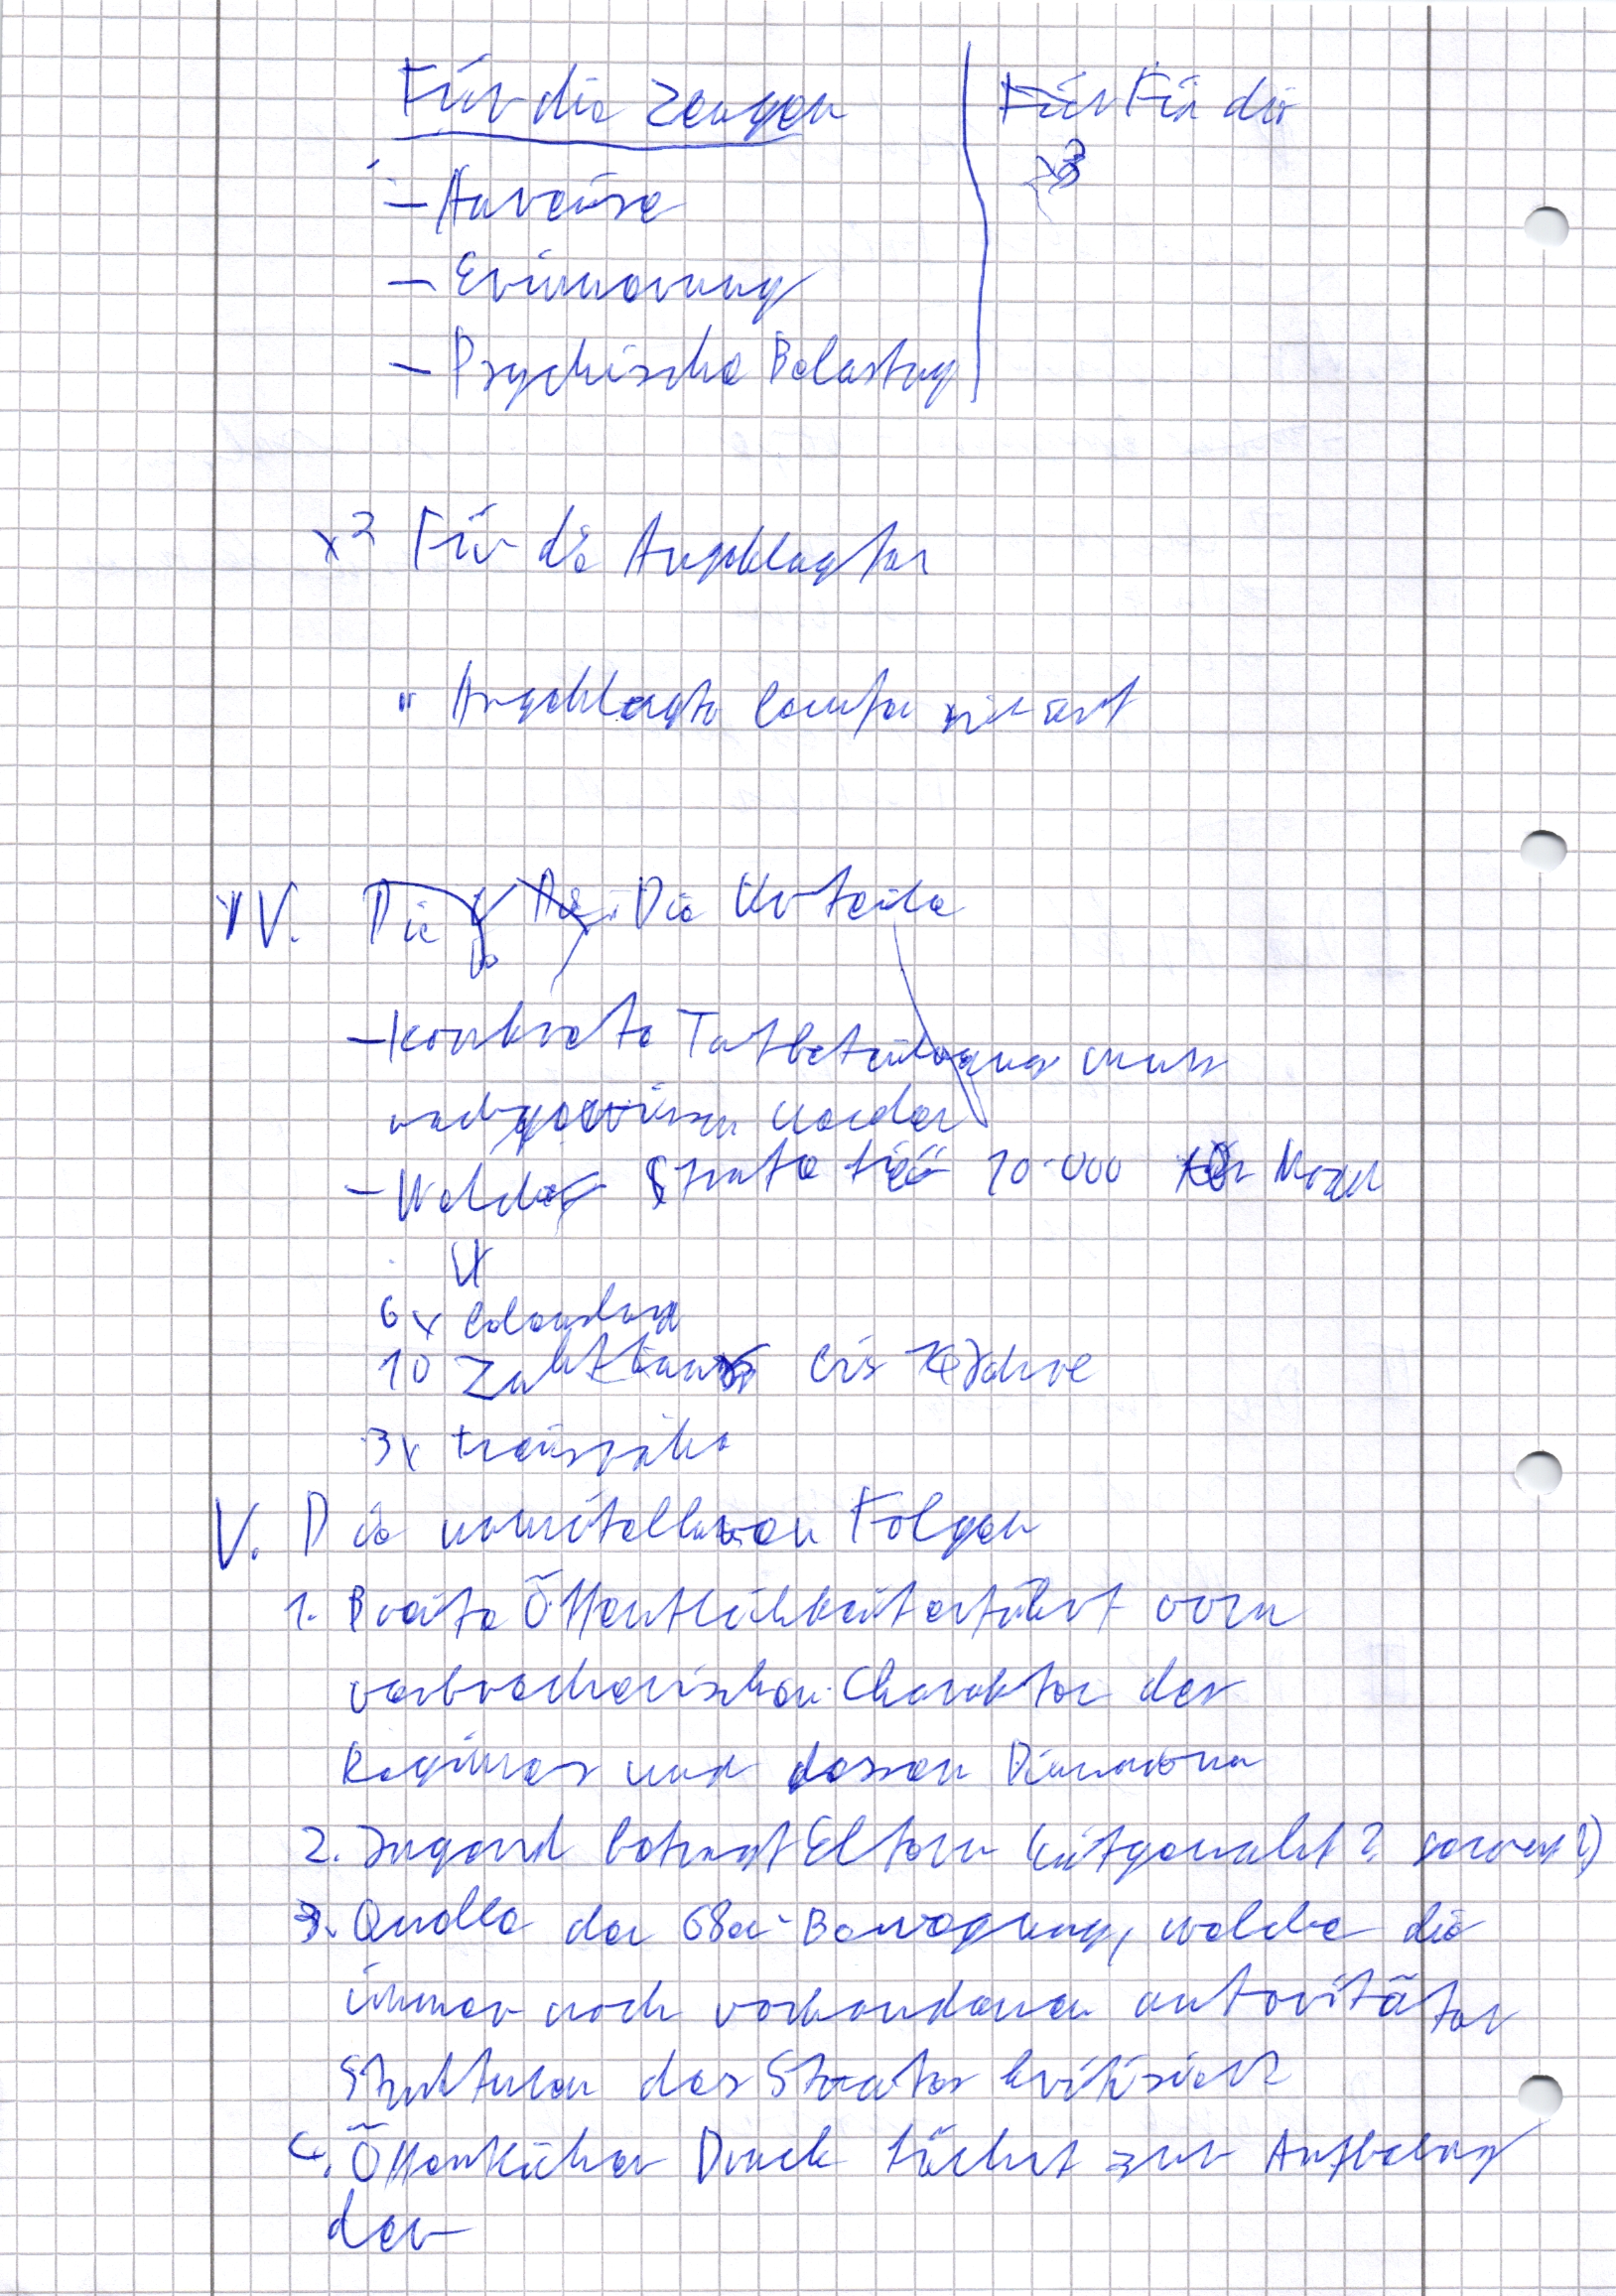 Für die Zeugen
Für Für die
x3
- Anreise
- Erinnerung
- Psychische Belastung
x2 Für die Angeklagten
Angeklagte laufen
IV. Die Die Urteile
- Konkrete Tatbeteiligung muss
nachgewiesen werden
- Welche Strafe für 10.000 Morde
6x lebenslang
10 Zuchthaus bis 14 Jahre
3x Freispüche
V. Die unmittelbaren Folgen
1. Breite Öffentlichkeit erfährt vom
verbrecherischen Charakter des
Regimes und dessen Dimension
2. Jugend befragt Eltern (mitgemacht? gewusst?)
3. Quelle der 68er-Bewegung, welche die
immer noch vorhandenen autoritäten
Strukturen des Staates kritisiert
4. Öffentlicher Druck führt zur Aufhebung
der